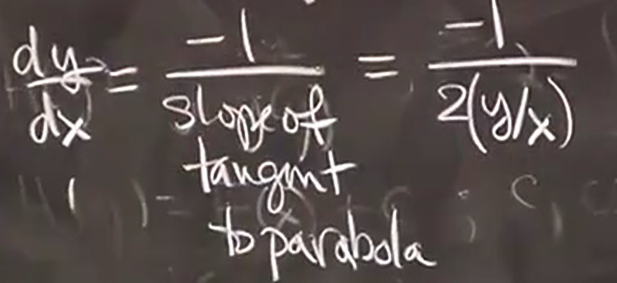 dy/dx = -1/slope of tangent to parabola = -1/2(y/x)